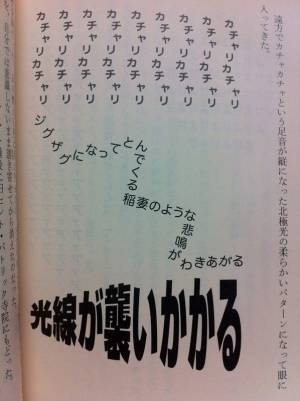 遠方でカチャカチャという足音が縦になった北極光の柔らかいパターンになって眼に
入ってきた。
カチャリカチャリ
カチャリカチャリ
カチャリカチャリ
カチャリカチャリ
カチャリカチャリ
カチャリカチャリ
カチャリカチャリ
カチャリカチャリ
カチャリカチャリ
ジグザグになってとんでくる
稲妻のような
悲鳴が
わきあがる
光線が襲いかかる